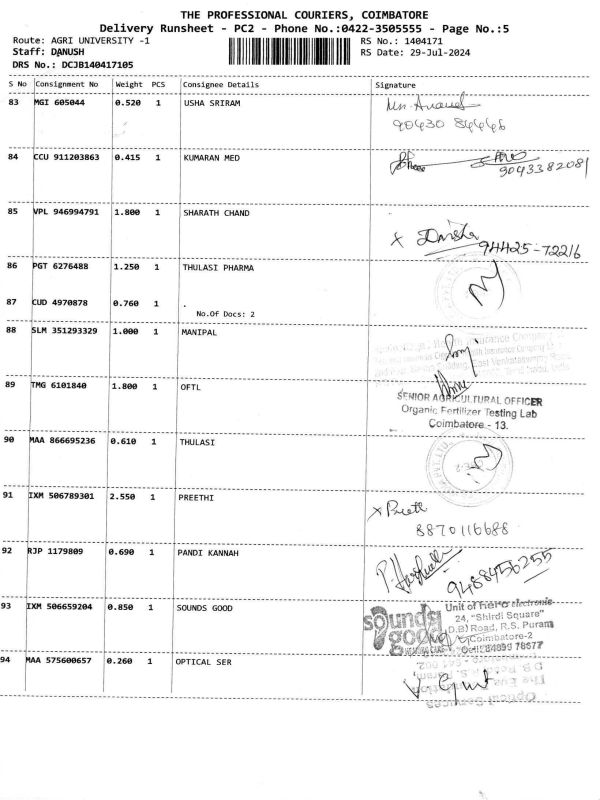 THE PROFESSIONAL COURIERS, COIMBATORE
Delivery Runsheet - PC2 - Phone No.:0422-3505555 - Page No.:5
Route: AGRI UNIVERSITY -1
RS No.: 1404171
Staff: DANUSH
RS Date: 29-Jul-2024
DRS No.: DCJB140417105
S No Consignment No Weight PCS Consignee Details Signature
83 MGI 605044 0.520 1 USHA SRIRAM
90430 84446
84 CCU 911203863 0.415 1 KUMARAN MED
9043382081
85 VPL 946994791 1.800 1 SHARATH CHAND
94425-72216
86 PGT 6276488 1.250 1 THULASI PHARMA
87 CUD 4970878 0.760 1 .
No.Of Docs: 2
88 SLM 351293329 1.000 1 MANIPAL
89 TMG 6101840 1.800 1 OFTL
SENIOR AGRICULTURAL OFFICER
Organic Fertilizer Testing Lab
Coimbatore - 13.
90 MAA 866695236 0.610 1 THULASI
91 IXM 506789301 2.550 1 PREETHI
8870116688
92 RJP 1179809 0.690 1 PANDI KANNAH
9488456255
93 IXM 506659204 0.850 1 SOUNDS GOOD
sounds good
Unit of Hero electronic
24, "Shirdi Square"
D.B) Road, R.S. Puram
Coimbatore-2
Cell: 84899 78677
94 MAA 575600657 0.260 1 OPTICAL SER